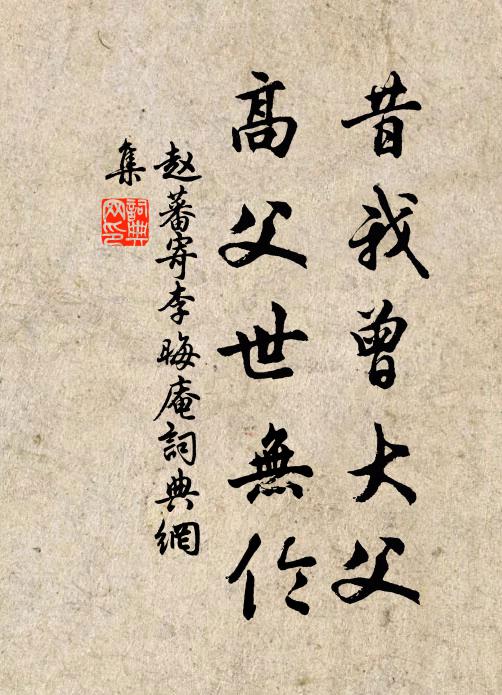 昔我曾大父
高父世無伦
赵蕃寄李晦庵詞典網
集
詞典網印